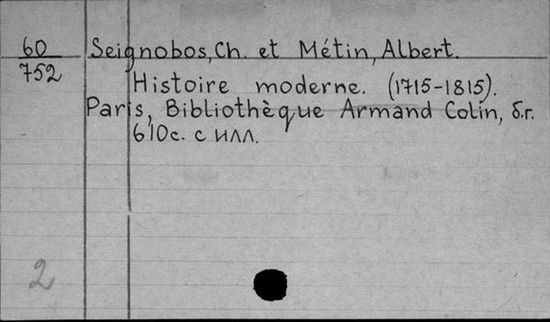 60
752
Seignobos, Ch. et Métin, Albert.
Histoire moderne. (1715-1815).
Paris, Bibliothèque Armand Colin, б.г.
610с. с илл.
2